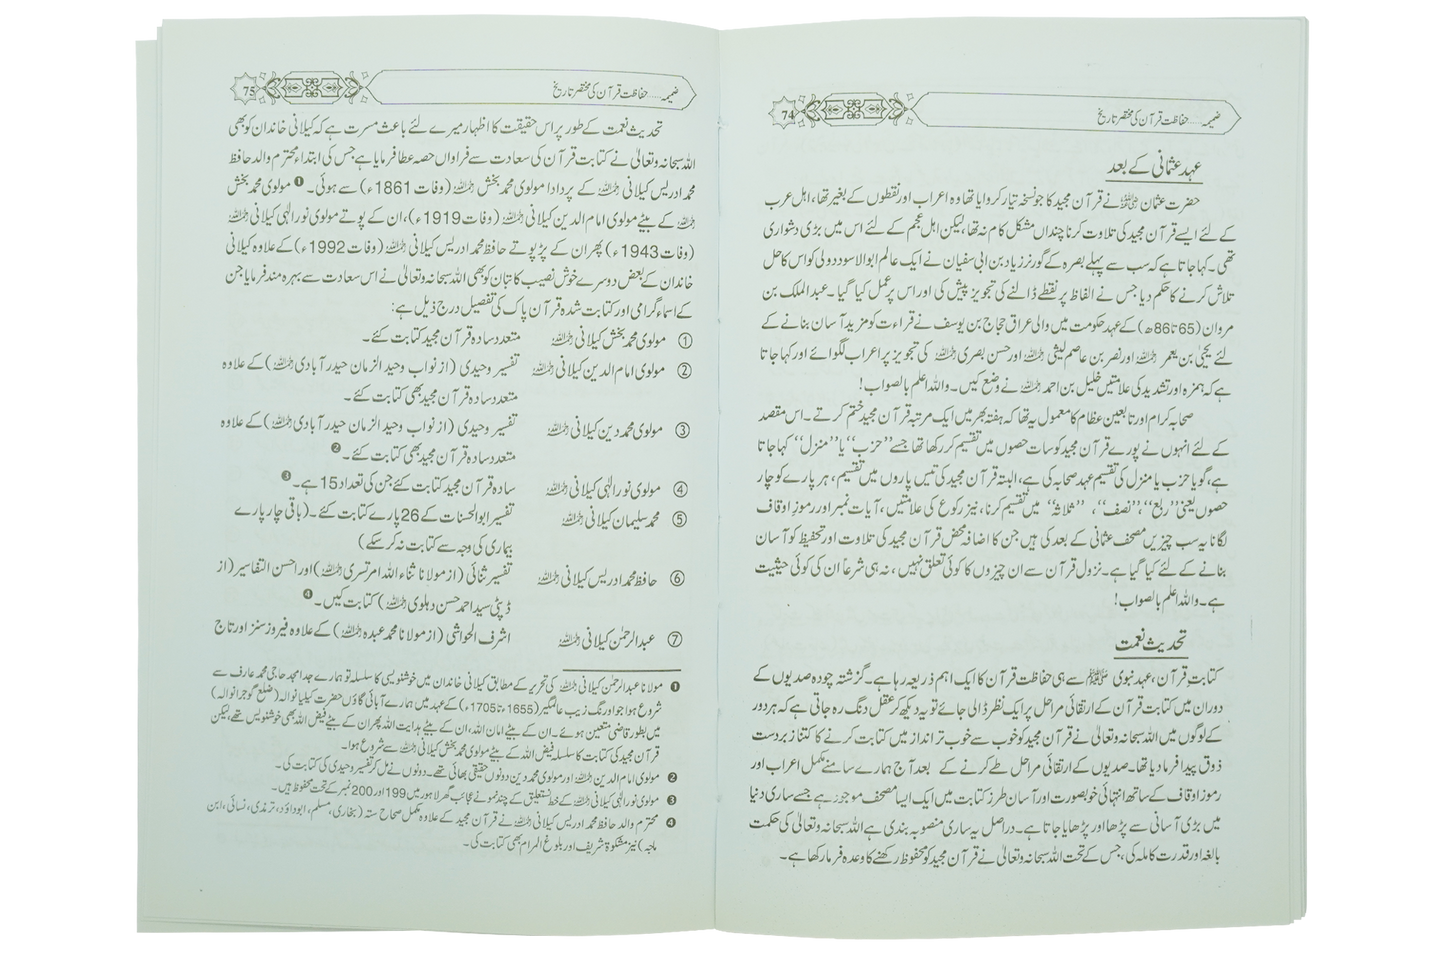 ضمیمہ.....حفاظت قرآن کی مختصر تاریخ
74
عہد عثمانی کے بعد
حضرت عثمان رضی اللہ عنہ نے قرآن مجید کا جو نسخہ تیار کروایا تھا وہ اعراب اور نقطوں کے بغیر تھا، اہل عرب
کے لئے ایسے قرآن مجید کی تلاوت کرنا چنداں مشکل کام نہ تھا، لیکن اہل عجم کے لئے اس میں بڑی دشواری
تھی۔ کہا جاتا ہے کہ سب سے پہلے بصرہ کے گورنر زیاد بن ابی سفیان نے ایک عالم ابوالاسود دولی کو اس کا حل
تلاش کرنے کا حکم دیا جس نے الفاظ پر نقطے ڈالنے کی تجویز پیش کی اور اس پر عمل کیا گیا۔ عبدالملک بن
مروان (65 تا 86ھ) کے عہد حکومت میں والی عراق حجاج بن یوسف نے قراءت کو مزید آسان بنانے کے
لئے یحییٰ بن یعمر رحمہ اللہ اور نصر بن عاصم لیثی رحمہ اللہ اور حسن بصری رحمہ اللہ کی تجویز پر اعراب لگوائے اور کہا جاتا
ہے کہ ہمزہ اور تشدید کی علامتیں خلیل بن احمد رحمہ اللہ نے وضع کیں۔ واللہ اعلم بالصواب!
صحابہ کرام اور تابعین عظام کا معمول یہ تھا کہ ہفتہ بھر میں ایک مرتبہ قرآن مجید ختم کرتے۔ اس مقصد
کے لئے انہوں نے پورے قرآن مجید کو سات حصوں میں تقسیم کر رکھا تھا جسے ’’حزب‘‘ یا ’’منزل‘‘ کہا جاتا
ہے، گویا حزب یا منزل کی تقسیم عہد صحابہ کی ہے، البتہ قرآن مجید کی تیس پاروں میں تقسیم، ہر پارے کو چار
حصوں یعنی ’’ربع‘‘، ’’نصف‘‘، ’’ثلاثہ‘‘ میں تقسیم کرنا، نیز رکوع کی علامتیں، آیات نمبر اور رموز اوقاف
لگانا یہ سب چیزیں مصحف عثمانی کے بعد کی ہیں جن کا اضافہ محض قرآن مجید کی تلاوت اور تحفیظ کو آسان
بنانے کے لئے کیا گیا ہے۔ نزول قرآن سے ان چیزوں کا کوئی تعلق نہیں، نہ ہی شرعاً ان کی کوئی حیثیت
ہے۔ واللہ اعلم بالصواب!
تحدیث نعمت
کتابت قرآن، عہد نبوی ﷺ سے ہی حفاظت قرآن کا ایک اہم ذریعہ رہا ہے۔ گزشتہ چودہ صدیوں کے
دوران میں کتابت قرآن کے ارتقائی مراحل پر ایک نظر ڈالی جائے تو یہ دیکھ کر عقل دنگ رہ جاتی ہے کہ ہر دور
کے لوگوں میں اللہ سبحانہ وتعالیٰ نے قرآن مجید کو خوب سے خوب تر انداز میں کتابت کرنے کا کتنا زبردست
ذوق پیدا فرما دیا تھا۔ صدیوں کے ارتقائی مراحل طے کرنے کے بعد آج ہمارے سامنے مکمل اعراب اور
رموز اوقاف کے ساتھ انتہائی خوبصورت اور آسان طرز کتابت میں ایک ایسا مصحف موجود ہے جسے ساری دنیا
میں بڑی آسانی سے پڑھا اور پڑھایا جاتا ہے۔ دراصل یہ ساری منصوبہ بندی ہے اللہ سبحانہ وتعالیٰ کی حکمت
بالغہ اور قدرت کاملہ کی، جس کے تحت اللہ سبحانہ وتعالیٰ نے قرآن مجید کو محفوظ رکھنے کا وعدہ فرما رکھا ہے۔
ضمیمہ.....حفاظت قرآن کی مختصر تاریخ
75
تحدیث نعمت کے طور پر اس حقیقت کا اظہار میرے لئے باعث مسرت ہے کہ کیلانی خاندان کو بھی
اللہ سبحانہ وتعالیٰ نے کتابت قرآن کی سعادت سے فراواں حصہ عطا فرمایا ہے جس کی ابتداء محترم والد حافظ
محمد ادریس کیلانی رحمہ اللہ کے پردادا مولوی محمد بخش رحمہ اللہ (وفات 1861ء) سے ہوئی۔ ❶ مولوی محمد بخش
رحمہ اللہ کے بیٹے مولوی امام الدین کیلانی رحمہ اللہ (وفات 1919ء)، ان کے پوتے مولوی نور الٰہی کیلانی رحمہ اللہ
(وفات 1943ء) پھر ان کے پڑپوتے حافظ محمد ادریس کیلانی رحمہ اللہ (وفات 1992ء) کے علاوہ کیلانی
خاندان کے بعض دوسرے خوش نصیب کاتبان کو بھی اللہ سبحانہ وتعالیٰ نے اس سعادت سے بہرہ مند فرمایا جن
کے اسماء گرامی اور کتابت شدہ قرآن پاک کی تفصیل درج ذیل ہے:
① مولوی محمد بخش کیلانی رحمہ اللہ متعدد سادہ قرآن مجید کتابت کئے۔
② مولوی امام الدین کیلانی رحمہ اللہ تفسیر وحیدی (از نواب وحید الزمان حیدر آبادی رحمہ اللہ) کے علاوہ
متعدد سادہ قرآن مجید بھی کتابت کئے۔
③ مولوی محمد دین کیلانی رحمہ اللہ تفسیر وحیدی (از نواب وحید الزمان حیدر آبادی رحمہ اللہ) کے علاوہ
متعدد سادہ قرآن مجید بھی کتابت کئے۔ ❷
④ مولوی نور الٰہی کیلانی رحمہ اللہ سادہ قرآن مجید کتابت کئے جن کی تعداد 15 ہے۔ ❸
⑤ محمد سلیمان کیلانی رحمہ اللہ تفسیر ابوالحسنات کے 26 پارے کتابت کئے۔ (باقی چار پارے
بیماری کی وجہ سے کتابت نہ کر سکے)
⑥ حافظ محمد ادریس کیلانی رحمہ اللہ تفسیر ثنائی (از مولانا ثناء اللہ امرتسری رحمہ اللہ) اور احسن التفاسیر (از
ڈپٹی سید احمد حسن دہلوی رحمہ اللہ) کتابت کیں۔ ❹
⑦ عبدالرحمٰن کیلانی رحمہ اللہ اشرف الحواشی (از مولانا محمد عبدہ رحمہ اللہ) کے علاوہ فیروز سنز اور تاج
❶ مولانا عبدالرحمٰن کیلانی رحمہ اللہ کی تحریر کے مطابق کیلانی خاندان میں خوشنویسی کا سلسلہ تو ہمارے جد امجد حاجی محمد عارف سے
شروع ہوا جو اورنگ زیب عالمگیر (1655 تا 1705ء) کے عہد میں ہمارے آبائی گاؤں حضرت کیلیانوالہ (ضلع گوجرانوالہ)
میں بطور قاضی متعین ہوئے۔ ان کے بیٹے امان اللہ، ان کے بیٹے ہدایت اللہ پھر ان کے بیٹے فیض اللہ بھی خوشنویس تھے، لیکن
قرآن مجید کی کتابت کا سلسلہ فیض اللہ کے بیٹے مولوی محمد بخش کیلانی رحمہ اللہ سے شروع ہوا۔
❷ مولوی امام الدین رحمہ اللہ اور مولوی محمد دین دونوں حقیقی بھائی تھے۔ دونوں نے مل کر تفسیر وحیدی کی کتابت کی۔
❸ مولوی نور الٰہی کیلانی رحمہ اللہ کے خط نستعلیق کے چند نمونے عجائب گھر لاہور میں 199 اور 200 نمبر کے تحت محفوظ ہیں۔
❹ محترم والد حافظ محمد ادریس کیلانی رحمہ اللہ نے قرآن مجید کے علاوہ مکمل صحاح ستہ (بخاری، مسلم، ابوداؤد، ترمذی، نسائی، ابن
ماجہ) نیز مشکوٰۃ شریف اور بلوغ المرام بھی کتابت کی۔